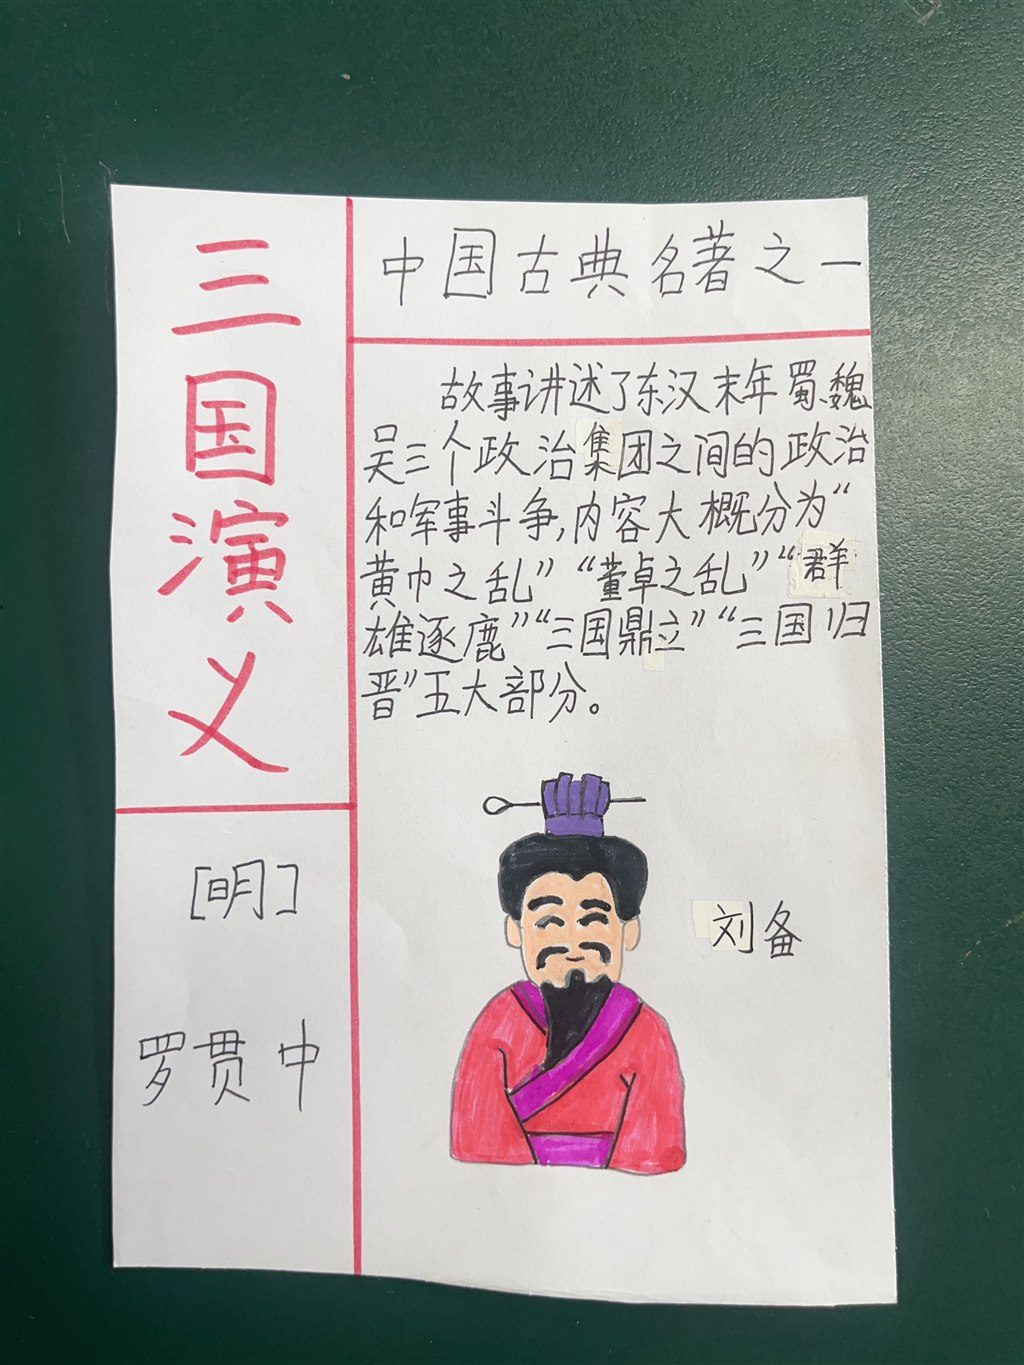 三国演义
[明]
罗贯中
中国古典名著之一
故事讲述了东汉末年蜀、魏
吴三个政治集团之间的政治
和军事斗争,内容大概分为“
黄巾之乱”“董卓之乱”“群
雄逐鹿”“三国鼎立”“三国归
晋”五大部分。
刘备